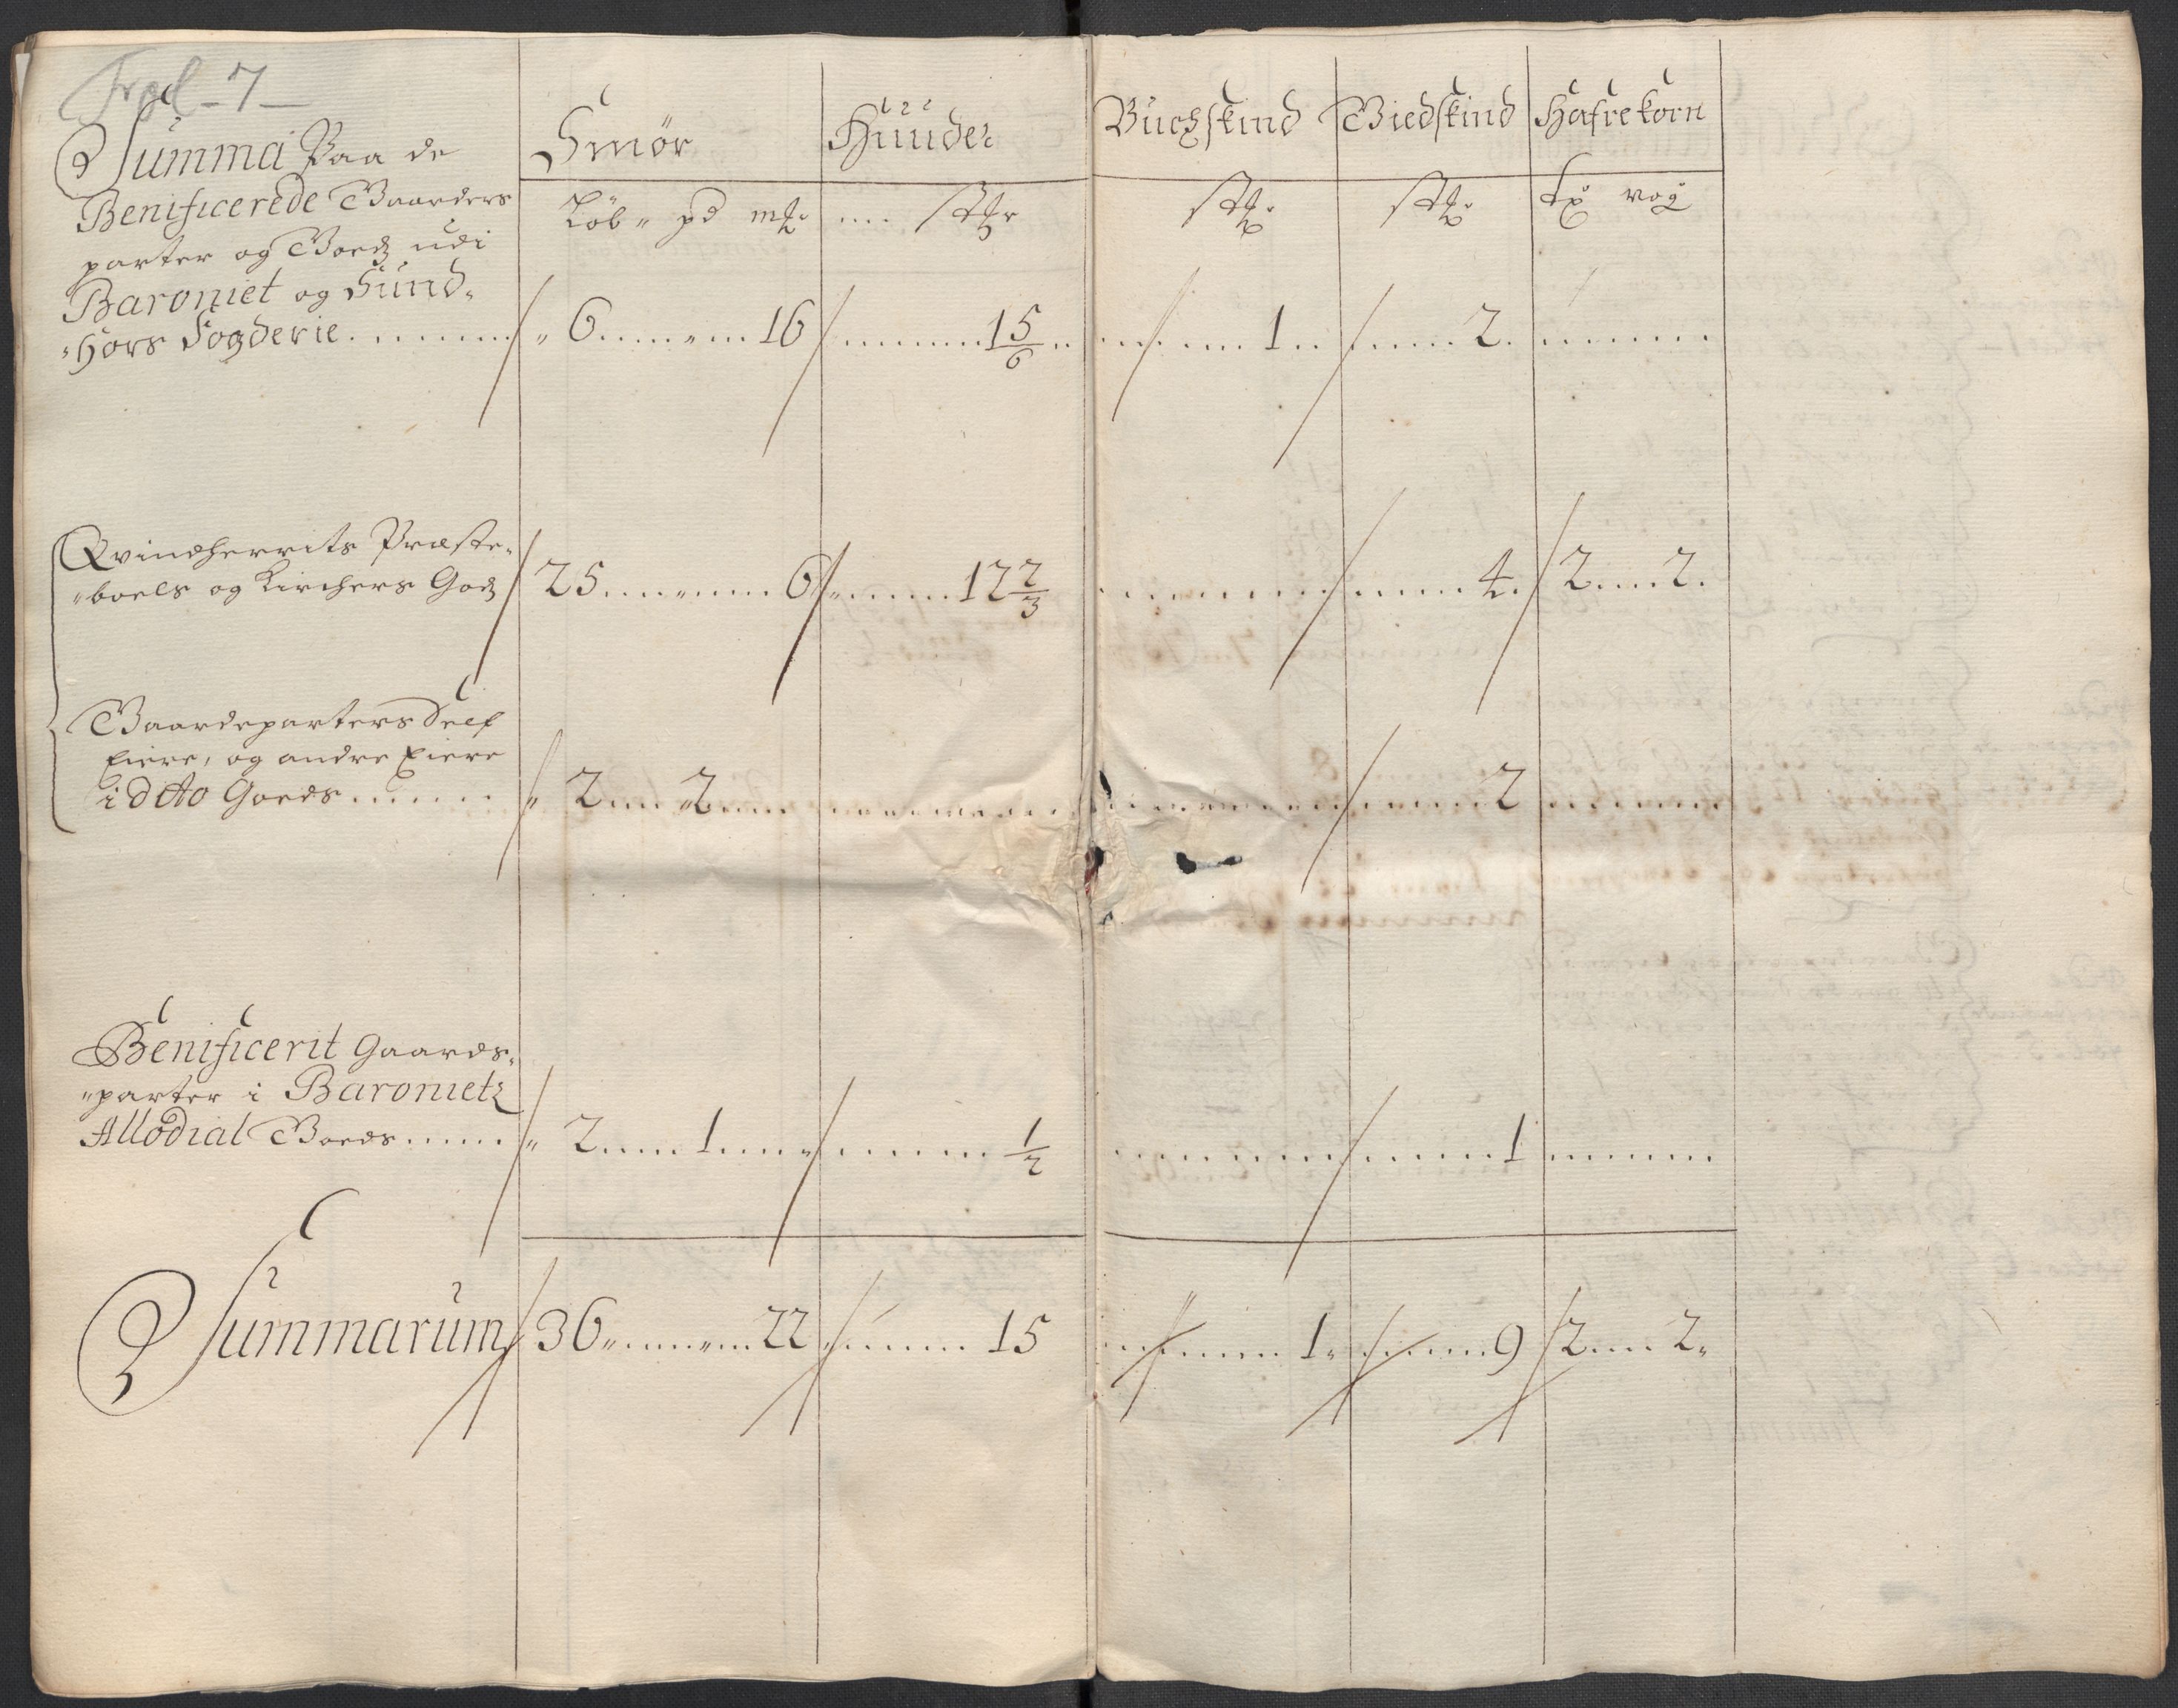 Fol - 7 -
Smør Huuder Buchskind Giedskind Hafrekorn
Løb pd mk stkr stk stk tø vog
Summa Paa de
Benificerede Gaarders
parter og Goedz udi
Baroniet og Sund„
„Hors Fogderie . . . . . . . „ 6 . . . . „ . . . 16 . . . . . . . 1 5/6 . . . . . . . 1 . . . . . . . 2 . . . . . . . .
Qvindherrits Præste„
„boels og Kirchers Godz 25 . . . . „ . . . . 6 „ . . . . . 12 2/3 . . . . . . . . . . . . . . 4 . 2 . . . . 2 .
Gaardeparters Self
Eiere, og andre Eiere
i ditto Goeds . . . . . . . „ 2 . . . . 2 . . . . . . . . . . . . . . . . . . . . . . . . 2 . . . . . . .
Benificerit Gaards„
„parter i Baronietz
Allodial Goeds . . . . . . „ 2 . . . . . 1 . . . . „ . . . . . . . 1/2 . . . . . . . . . . . . . . . 1 . . . . . . .
Summarum 36 „ . . . . „ . . . 22 „ . . . . . . 15 . . . . . . . 1 „ . . . . . . 9 2 . . . . 2 „